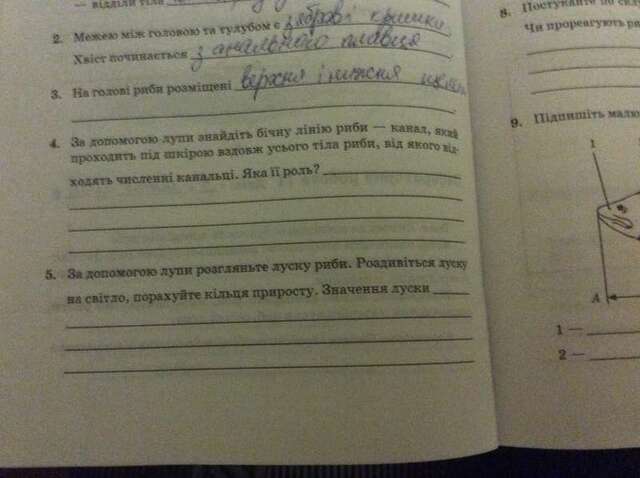 — відділи тіла
2. Межею між головою та тулубом є зяброві кришки
Хвіст починається з анального плавця
3. На голові риби розміщені верхня і нижня
4. За допомогою лупи знайдіть бічну лінію риби — канал, який
проходить під шкірою вздовж усього тіла риби, від якого від-
ходять численні канальці. Яка її роль?
5. За допомогою лупи розгляньте луску риби. Роздивіться луску
на світло, порахуйте кільця приросту. Значення луски
8. Постукайте по
Чи прореагують
9. Підпишіть
1
A
1 —
2 —